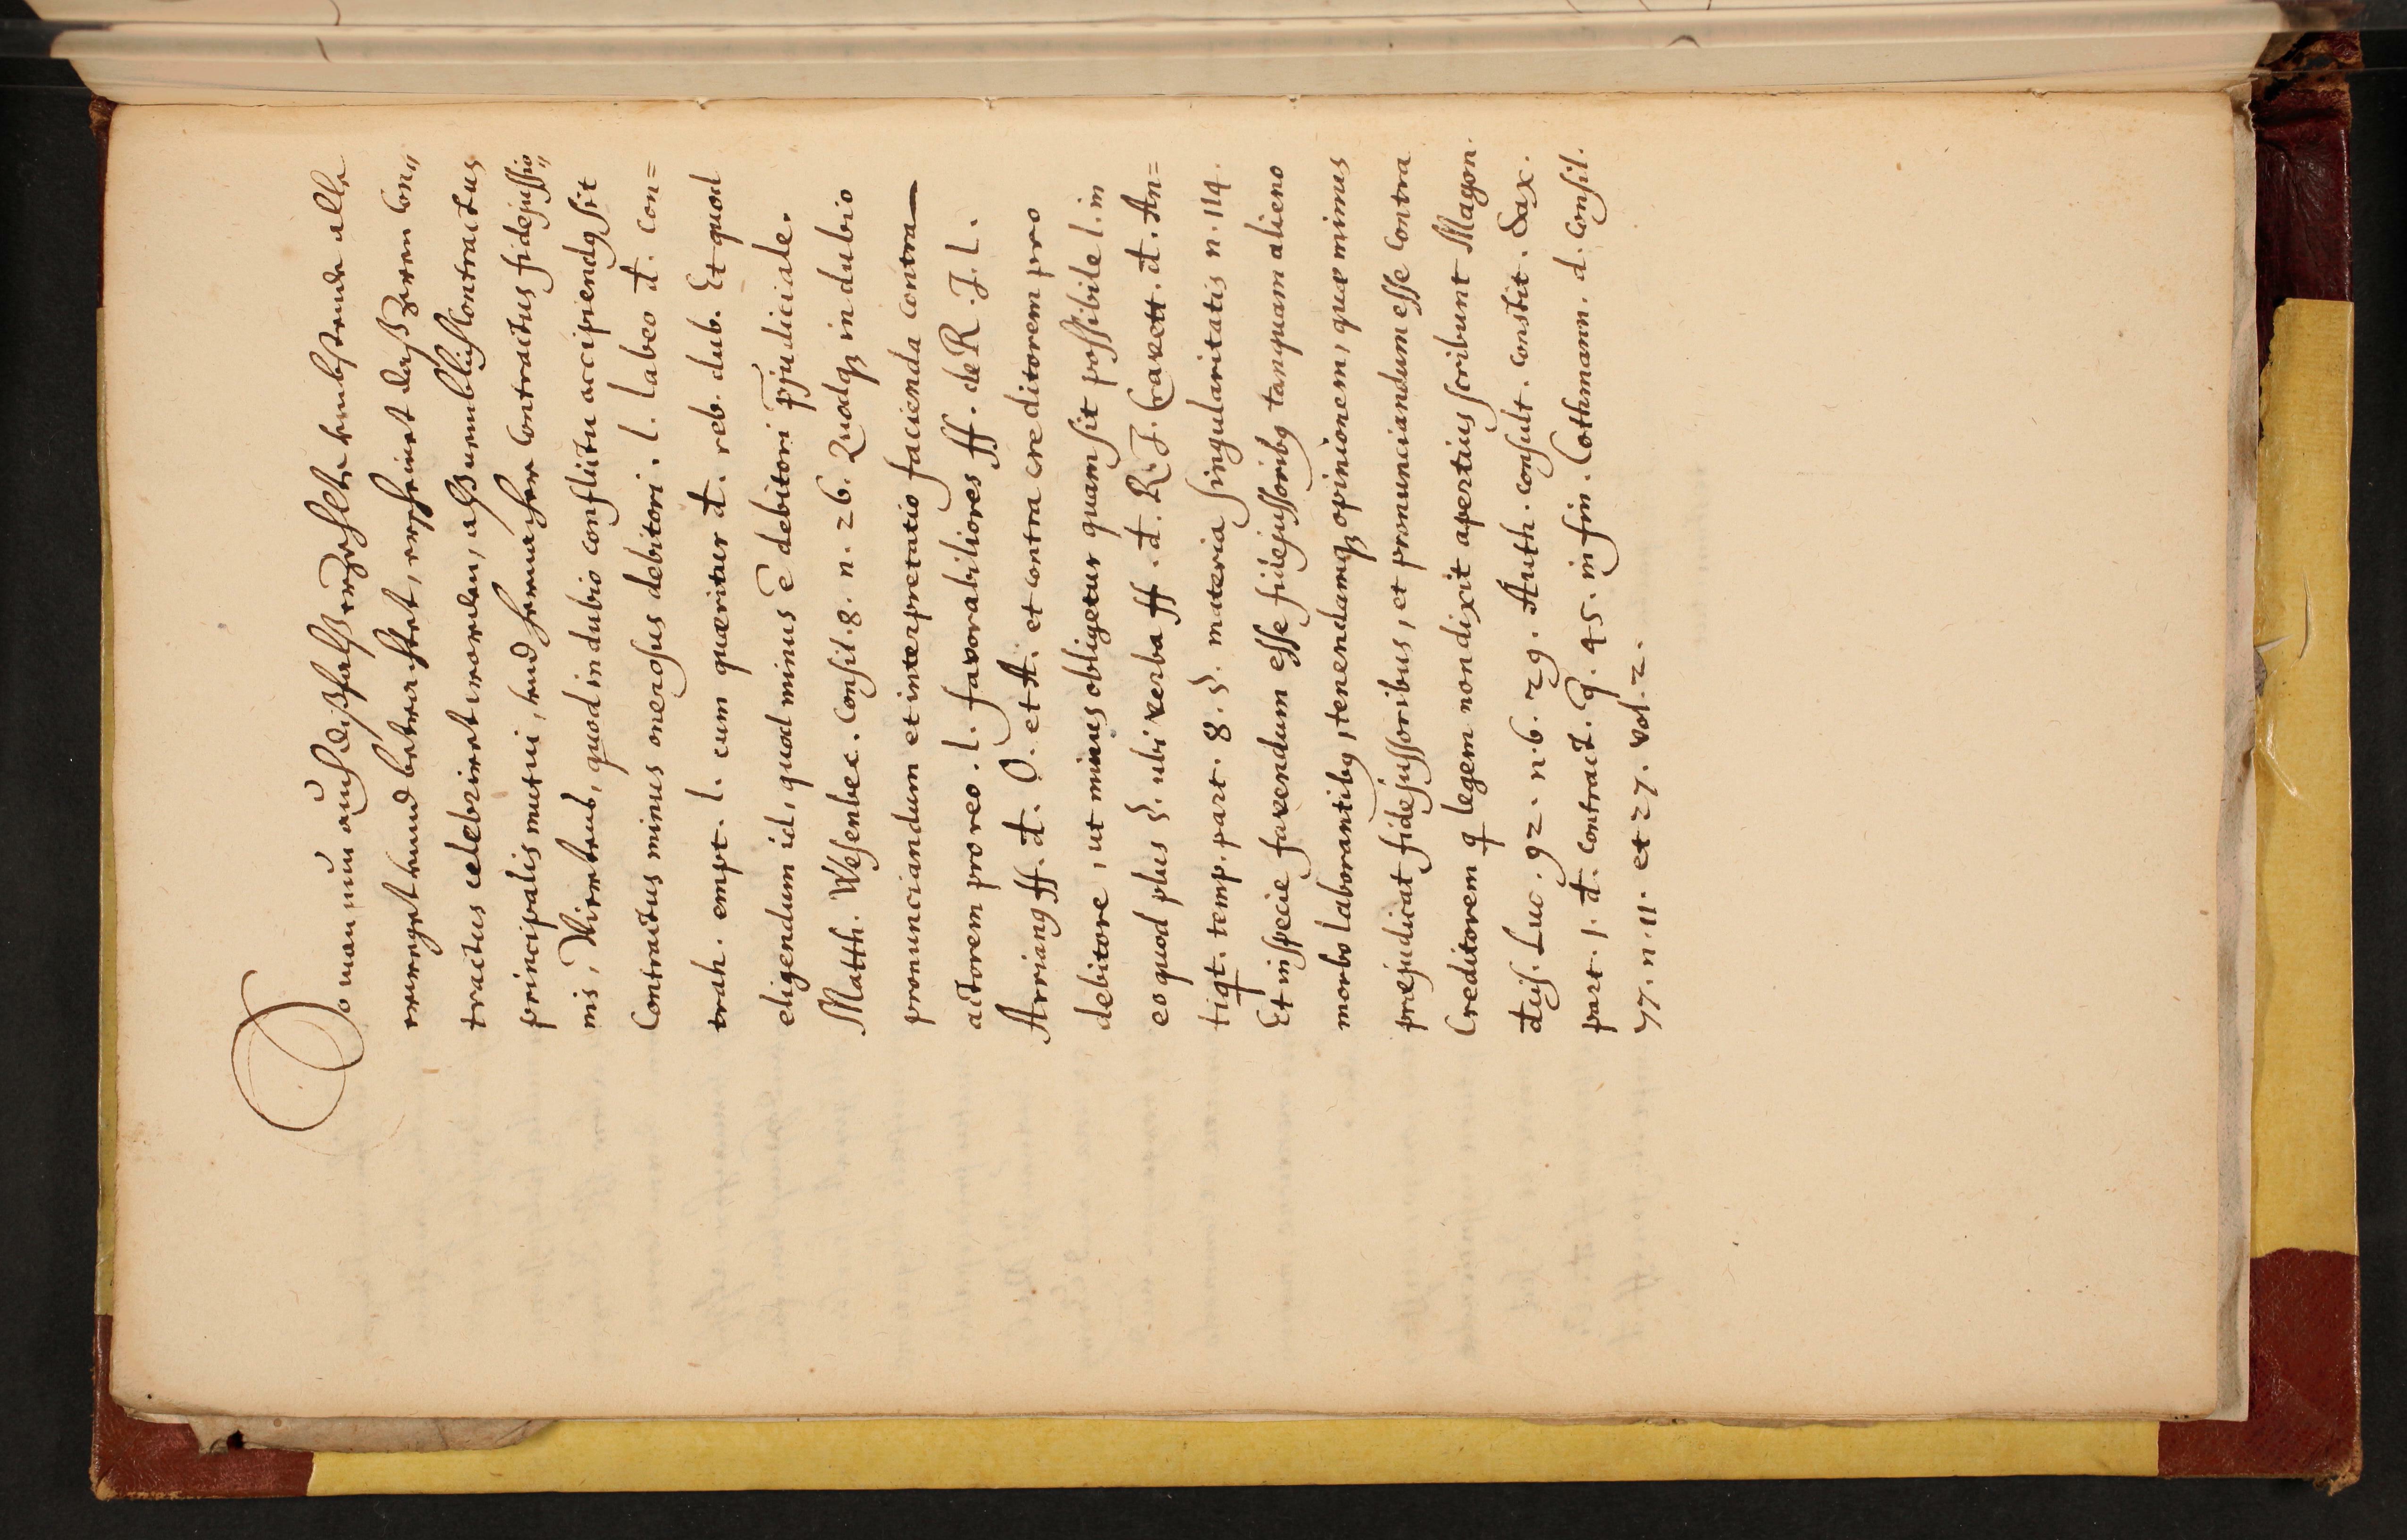 So man nun auch dißfalß erzehlte umbstende alle
erweget und betrachtet, erscheinet daß zween Con„
tractus celebriret worden, alß nemblich Contractus
principalis mutui, und hernacher Contractus fidejussio„
nis, Wiederumb, quod in dubio conflictu accipiendq sit
Contractus minus onerosus debitori. l. labeo d. con=
trah. empt. l. cum quæritur d. reb. dub. Et quod
eligendum id, quod minus ē debitori p̄judiciale.
Matth. Wesenbec. Consil. 8. n. 26. Quodqз in dubio
pronunciandum et interpretatio facienda contra
actorem pro reo. l. favorabiliores ff. de R. J. l.
Arrianq ff. d. O. et A. et contra creditorem pro
debitore, ut minus obligetur quam sit possibile l. in
eo quod plus §. ubi verba ff. d. R. J. Cravett. d. An=
tiqt. temp. part. 8. §. materia singularitatis n. 114.
Et in specie favendum esse fidejussoribq tanquam alieno
morbo laborantibq, tenendamqз opinionem, quæ minus
præjudicat fidejussoribus, et pronunciandum esse contra
Creditorem q legem non dixit apertius scribunt Magon.
d͞eis. Luc. 92. n. 6. 29. Auth. consult. constit. Sax.
part. 1. d. contract. q. 45. in fin. Cothmann. d. Consil.
77. n. 11. et 27. vol. 2.